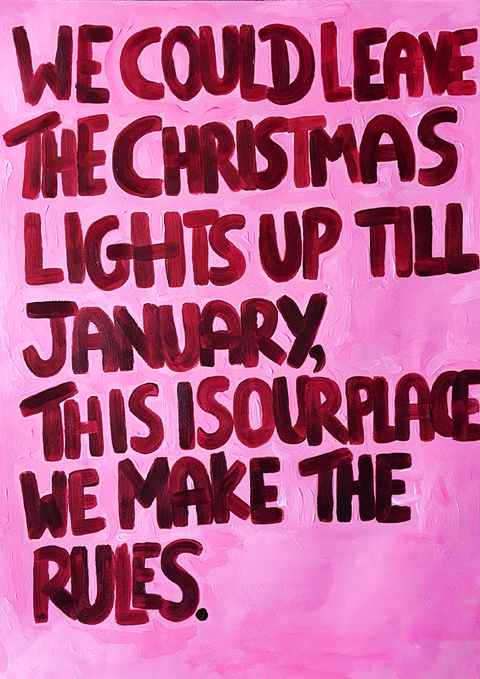 WE COULD LEAVE
THE CHRISTMAS
LIGHTS UP TILL
JANUARY,
THIS IS OUR PLACE
WE MAKE THE
RULES.